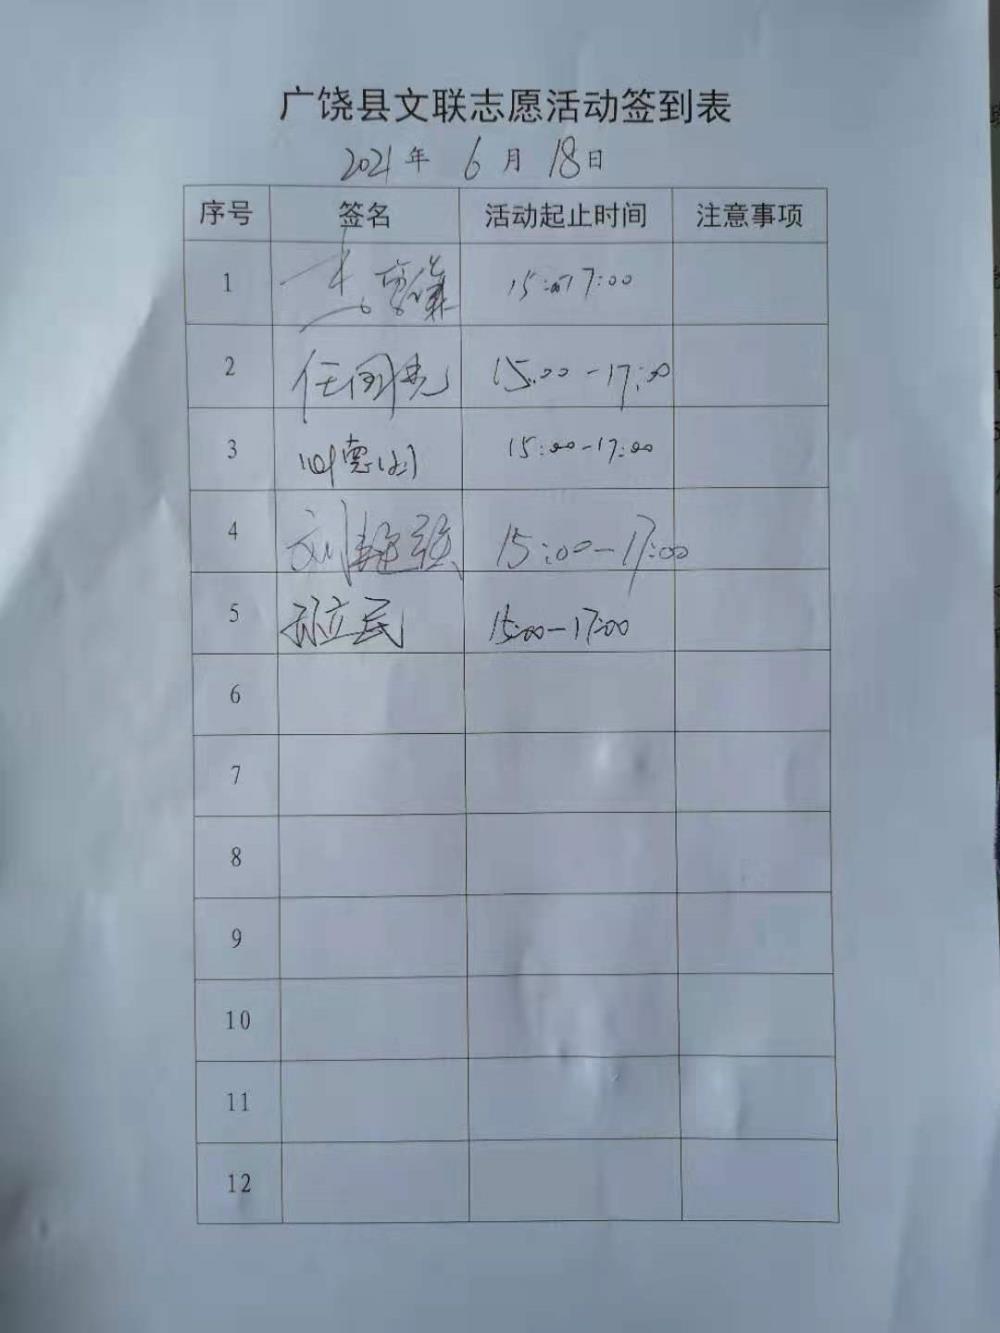 广饶县文联志愿活动签到表
2021年 6月 18日
序号 签名 活动起止时间 注意事项
1 15:00-17:00
2 15:00-17:00
3 15:00-17:00
4 刘 15:00-17:00
5 孙立民 15:00-17:00
6
7
8
9
10
11
12